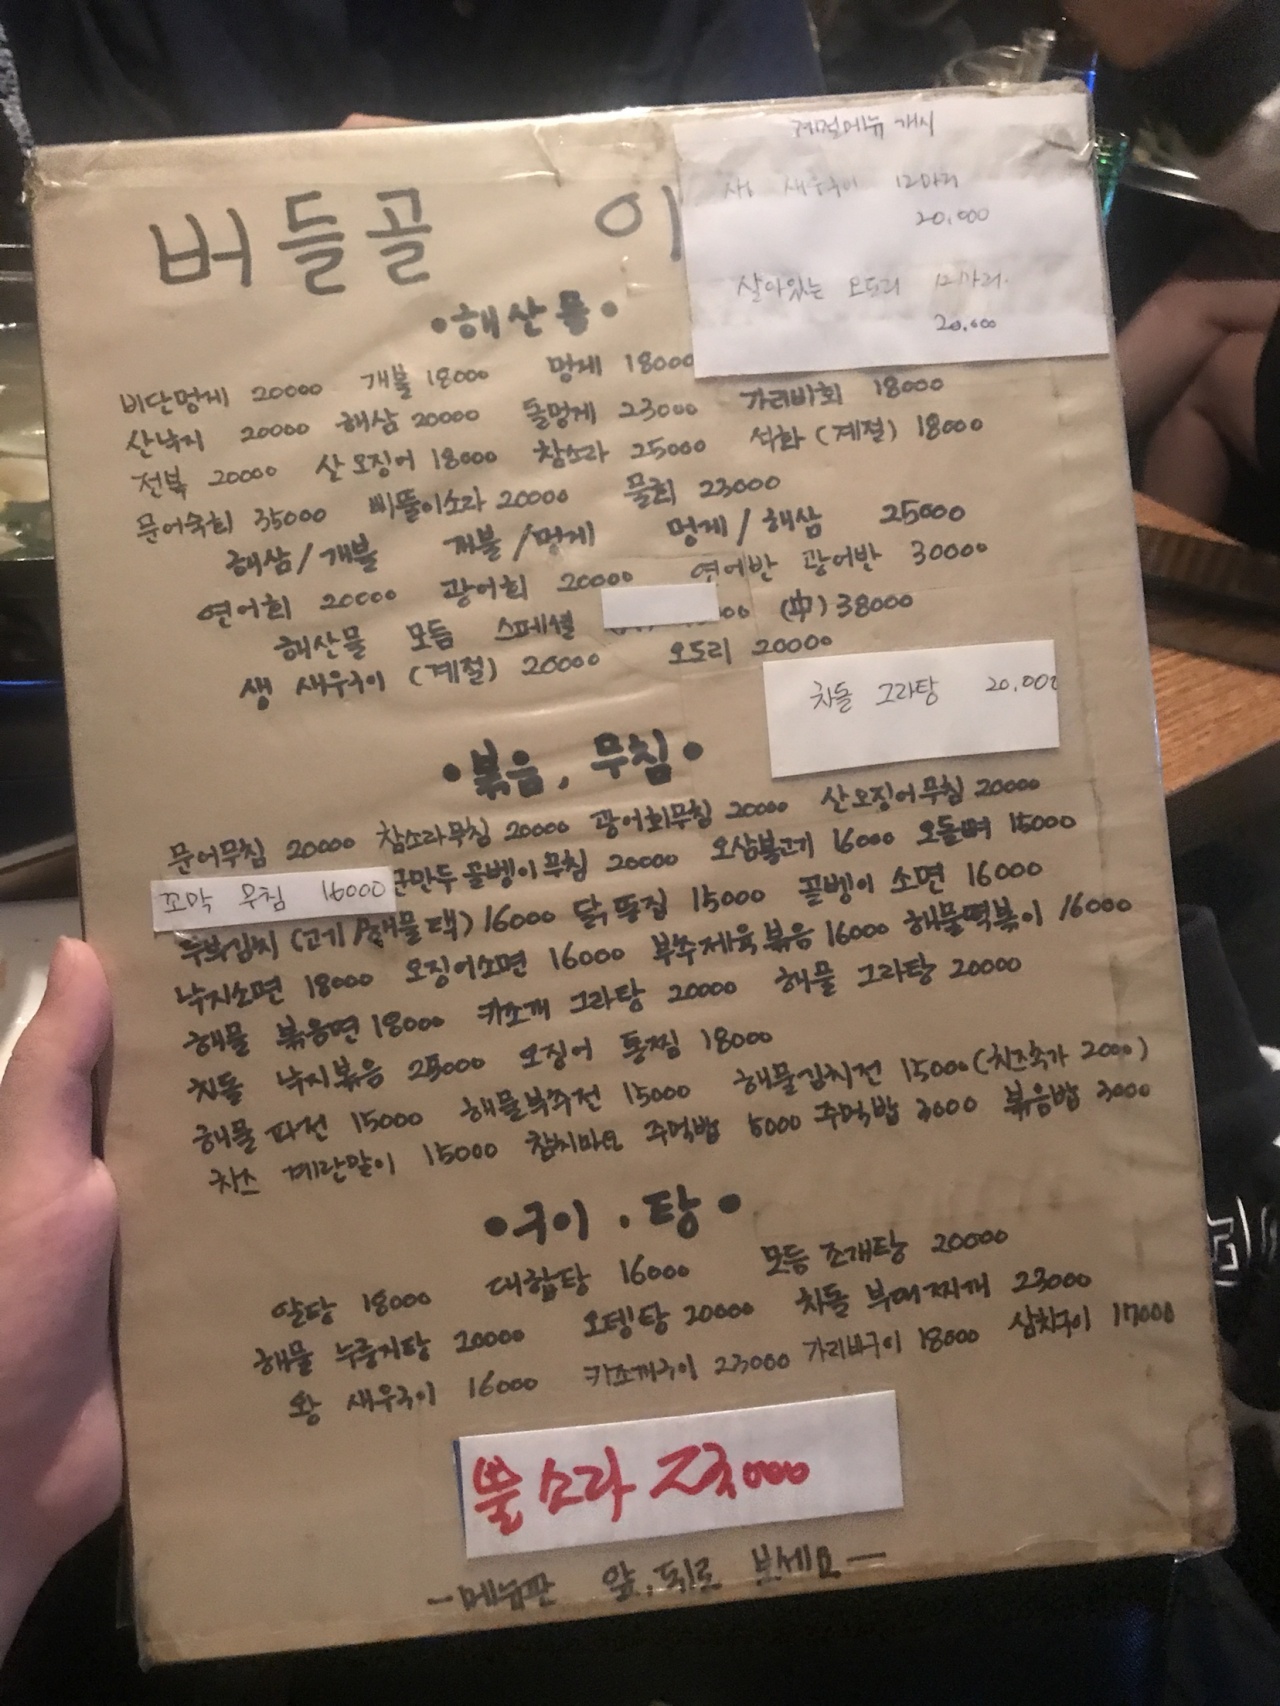 계절메뉴 개시
새우구이 12마리
20,000
살아있는 오도리 12마리
20,000
버들골 이
•해산물•
비단멍게 20000 개불 18000 멍게 18000
산낙지 20000 해삼 20000 돌멍게 23000 가리비회 18000
전복 20000 산오징어 18000 참소라 25000 석화(계절) 18000
문어숙회 35000 삐뚤이소라 20000 물회 23000
해삼/개불 개불/멍게 멍게/해삼 25000
연어회 20000 광어회 20000 연어반 광어반 30000
해산물 모듬 스페셜 (中) 38000
생 새우구이 (계절) 20000 오도리 20000
차돌 그라탕 20,000
•볶음, 무침•
문어무침 20000 참소라무침 20000 광어회무침 20000 산오징어무침 20000
꼬막 무침 16000 군만두 골벵이무침 20000 오삼불고기 16000 오돌뼈 15000
두부김치 (고기/해물택) 16000 닭똥집 15000 골벵이 소면 16000
낙지소면 18000 오징어소면 16000 부추제육볶음 16000 해물떡볶이 16000
해물 볶음면 18000 키조개 그라탕 20000 해물 그라탕 20000
차돌 낙지볶음 오징어 통찜 18000
해물파전 15000 해물부추전 15000 해물김치전 15000 (치즈추가 2000)
치즈 계란말이 15000 참치마요 주먹밥 5000 주먹밥 3000 볶음밥 3000
•구이 . 탕•
알탕 18000 대합탕 16000 모듬 조개탕 20000
해물 누룽지탕 20000 오뎅탕 20000 차돌 부대찌개 23000
왕 새우구이 16000 키조개구이 23000 가리비구이 18000 삼치구이 17000
뿔소라 23000
-메뉴판 앞,뒤로 보세요-